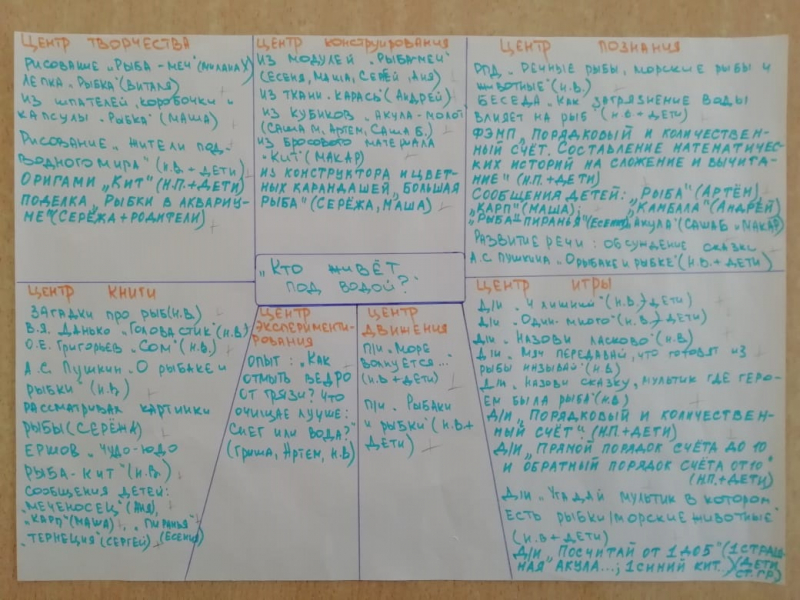 ЦЕНТР ТВОРЧЕСТВА
РИСОВАНИЕ „РЫБА-МЕЧ" (МИЛАНА У)
ЛЕПКА „РЫБКА" (ВИТАЛЯ)
ИЗ ШПАТЕЛЕЙ, КОРОБОЧКИ И
КАПСУЛЫ „РЫБКА" (МАША)
РИСОВАНИЕ „ЖИТЕЛИ ПОД-
ВОДНОГО МИРА" (Н.В. + ДЕТИ)
ОРИГАМИ „КИТ" (Н.П.+ДЕТИ)
ПОДЕЛКА „РЫБКИ В АКВАРИУ-
МЕ" (СЕРЁЖА+РОДИТЕЛИ)
ЦЕНТР КОНСТРУИРОВАНИЯ
ИЗ МОДУЛЕЙ „РЫБА-МЕЧ"
(ЕСЕНИЯ, МАША, СЕРГЕЙ, АНЯ)
ИЗ ТКАНИ „КАРАСЬ" (АНДРЕЙ)
ИЗ КУБИКОВ „АКУЛА-МОЛОТ"
(САША М, АРТЕМ, САША Б.)
ИЗ БРОСОВОГО МАТЕРИАЛА
„КИТ" (МАКАР)
ИЗ КОНСТРУКТОРА И ЦВЕТ-
НЫХ КАРАНДАШЕЙ „БОЛЬШАЯ
РЫБА" (СЕРЁЖА, МАША)
ЦЕНТР ПОЗНАНИЯ
„РЕЧНЫЕ РЫБЫ, МОРСКИЕ РЫБЫ И
ЖИВОТНЫЕ" (Н.В.)
БЕСЕДА „КАК ЗАГРЯЗНЕНИЕ ВОДЫ
ВЛИЯЕТ НА РЫБ" (Н.В + ДЕТИ)
ФЭМП „ПОРЯДКОВЫЙ И КОЛИЧЕСТВЕН-
НЫЙ СЧЁТ. СОСТАВЛЕНИЕ МАТЕМАТИЧЕС-
КИХ ИСТОРИЙ НА СЛОЖЕНИЕ И ВЫЧИТА-
НИЕ" (Н.П.+ДЕТИ)
СООБЩЕНИЯ ДЕТЕЙ: „РЫБА" (АРТЁМ)
„КАРП" (МАША); „КАМБАЛА" (АНДРЕЙ)
„РЫБА-ПИРАНЬЯ" (ЕСЕНИЯ) „АКУЛА" (САША Б. МАКАР)
РАЗВИТИЕ РЕЧИ: ОБСУЖДЕНИЕ СКАЗКИ
А.С ПУШКИНА „О РЫБАКЕ И РЫБКЕ" (Н.В. + ДЕТИ)
„КТО ЖИВЁТ
ПОД ВОДОЙ?"
ЦЕНТР КНИГИ
ЗАГАДКИ ПРО РЫБ (Н.В.)
В.Я. ДАНЬКО „ГОЛОВАСТИК" (Н.В.)
О.Е. ГРИГОРЬЕВ „СОМ" (Н.В.)
А.С. ПУШКИН „О РЫБАКЕ И
РЫБКИ" (Н.В.)
РАССМАТРИВАЛ КАРТИНКИ
РЫБЫ (СЕРЁЖА)
ЕРШОВ „ЧУДО-ЮДО
РЫБА-КИТ" (Н.В.)
СООБЩЕНИЯ ДЕТЕЙ:
„МЕЧЕНОСЕЦ" (АНЯ),
„КАРП" (МАША), „ПИРАНЬЯ"
„ТЕРНЕЦИЯ" (СЕРГЕЙ) (ЕСЕНИЯ)
ЦЕНТР
ЭКСПЕРИМЕНТИ-
РОВАНИЯ
ОПЫТ: „КАК
ОТМЫТЬ ВЕДРО
ОТ ГРЯЗИ? ЧТО
ОЧИЩАЕ ЛУЧШЕ:
СНЕГ ИЛИ ВОДА?"
(ГРИША, АРТЕМ, Н.В)
ЦЕНТР
ДВИЖЕНИЯ
П/И „МОРЕ
ВОЛНУЕТСЯ..."
(Н.В + ДЕТИ)
П/И „РЫБАКИ
И РЫБКИ" (Н.В+
ДЕТИ)
ЦЕНТР ИГРЫ
Д/И „4 ЛИШНИЙ" (Н.В.+ДЕТИ)
Д/И „ОДИН-МНОГО" (Н.В.+ДЕТИ)
Д/И „НАЗОВИ ЛАСКОВО" (Н.В.)
Д/И „МЯЧ ПЕРЕДАВАЙ, ЧТО ГОТОВЯТ ИЗ
РЫБЫ НАЗЫВАЙ" (Н.В)
Д/И „НАЗОВИ СКАЗКУ, МУЛЬТИК ГДЕ ГЕРО-
ЕМ БЫЛА РЫБА" (Н.В)
Д/И „ПОРЯДКОВЫЙ И КОЛИЧЕСТВЕН-
НЫЙ СЧЁТ" (Н.П.+ДЕТИ)
Д/И „ПРЯМОЙ ПОРЯДОК СЧЁТА ДО 10
И ОБРАТНЫЙ ПОРЯДОК СЧЁТА ОТ 10"
(Н.П.+ДЕТИ)
Д/И „УГАДАЙ МУЛЬТИК В КОТОРОМ
ЕСТЬ РЫБКИ/МОРСКИЕ ЖИВОТНЫЕ"
(Н.В + ДЕТИ)
Д/И „ПОСЧИТАЙ ОТ 1 ДО 5" (1 СТРАШ-
НАЯ АКУЛА...; 1 СИНИЙ КИТ...) (ДЕТИ
СТ. ГР.)